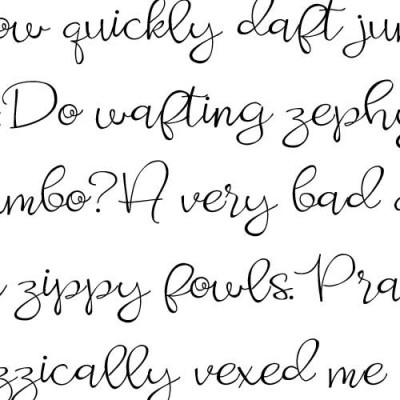 ow quickly daft jum
. Do wafting zephy
umbo? A very bad
zippy fowls. Pra
zzically vexed me